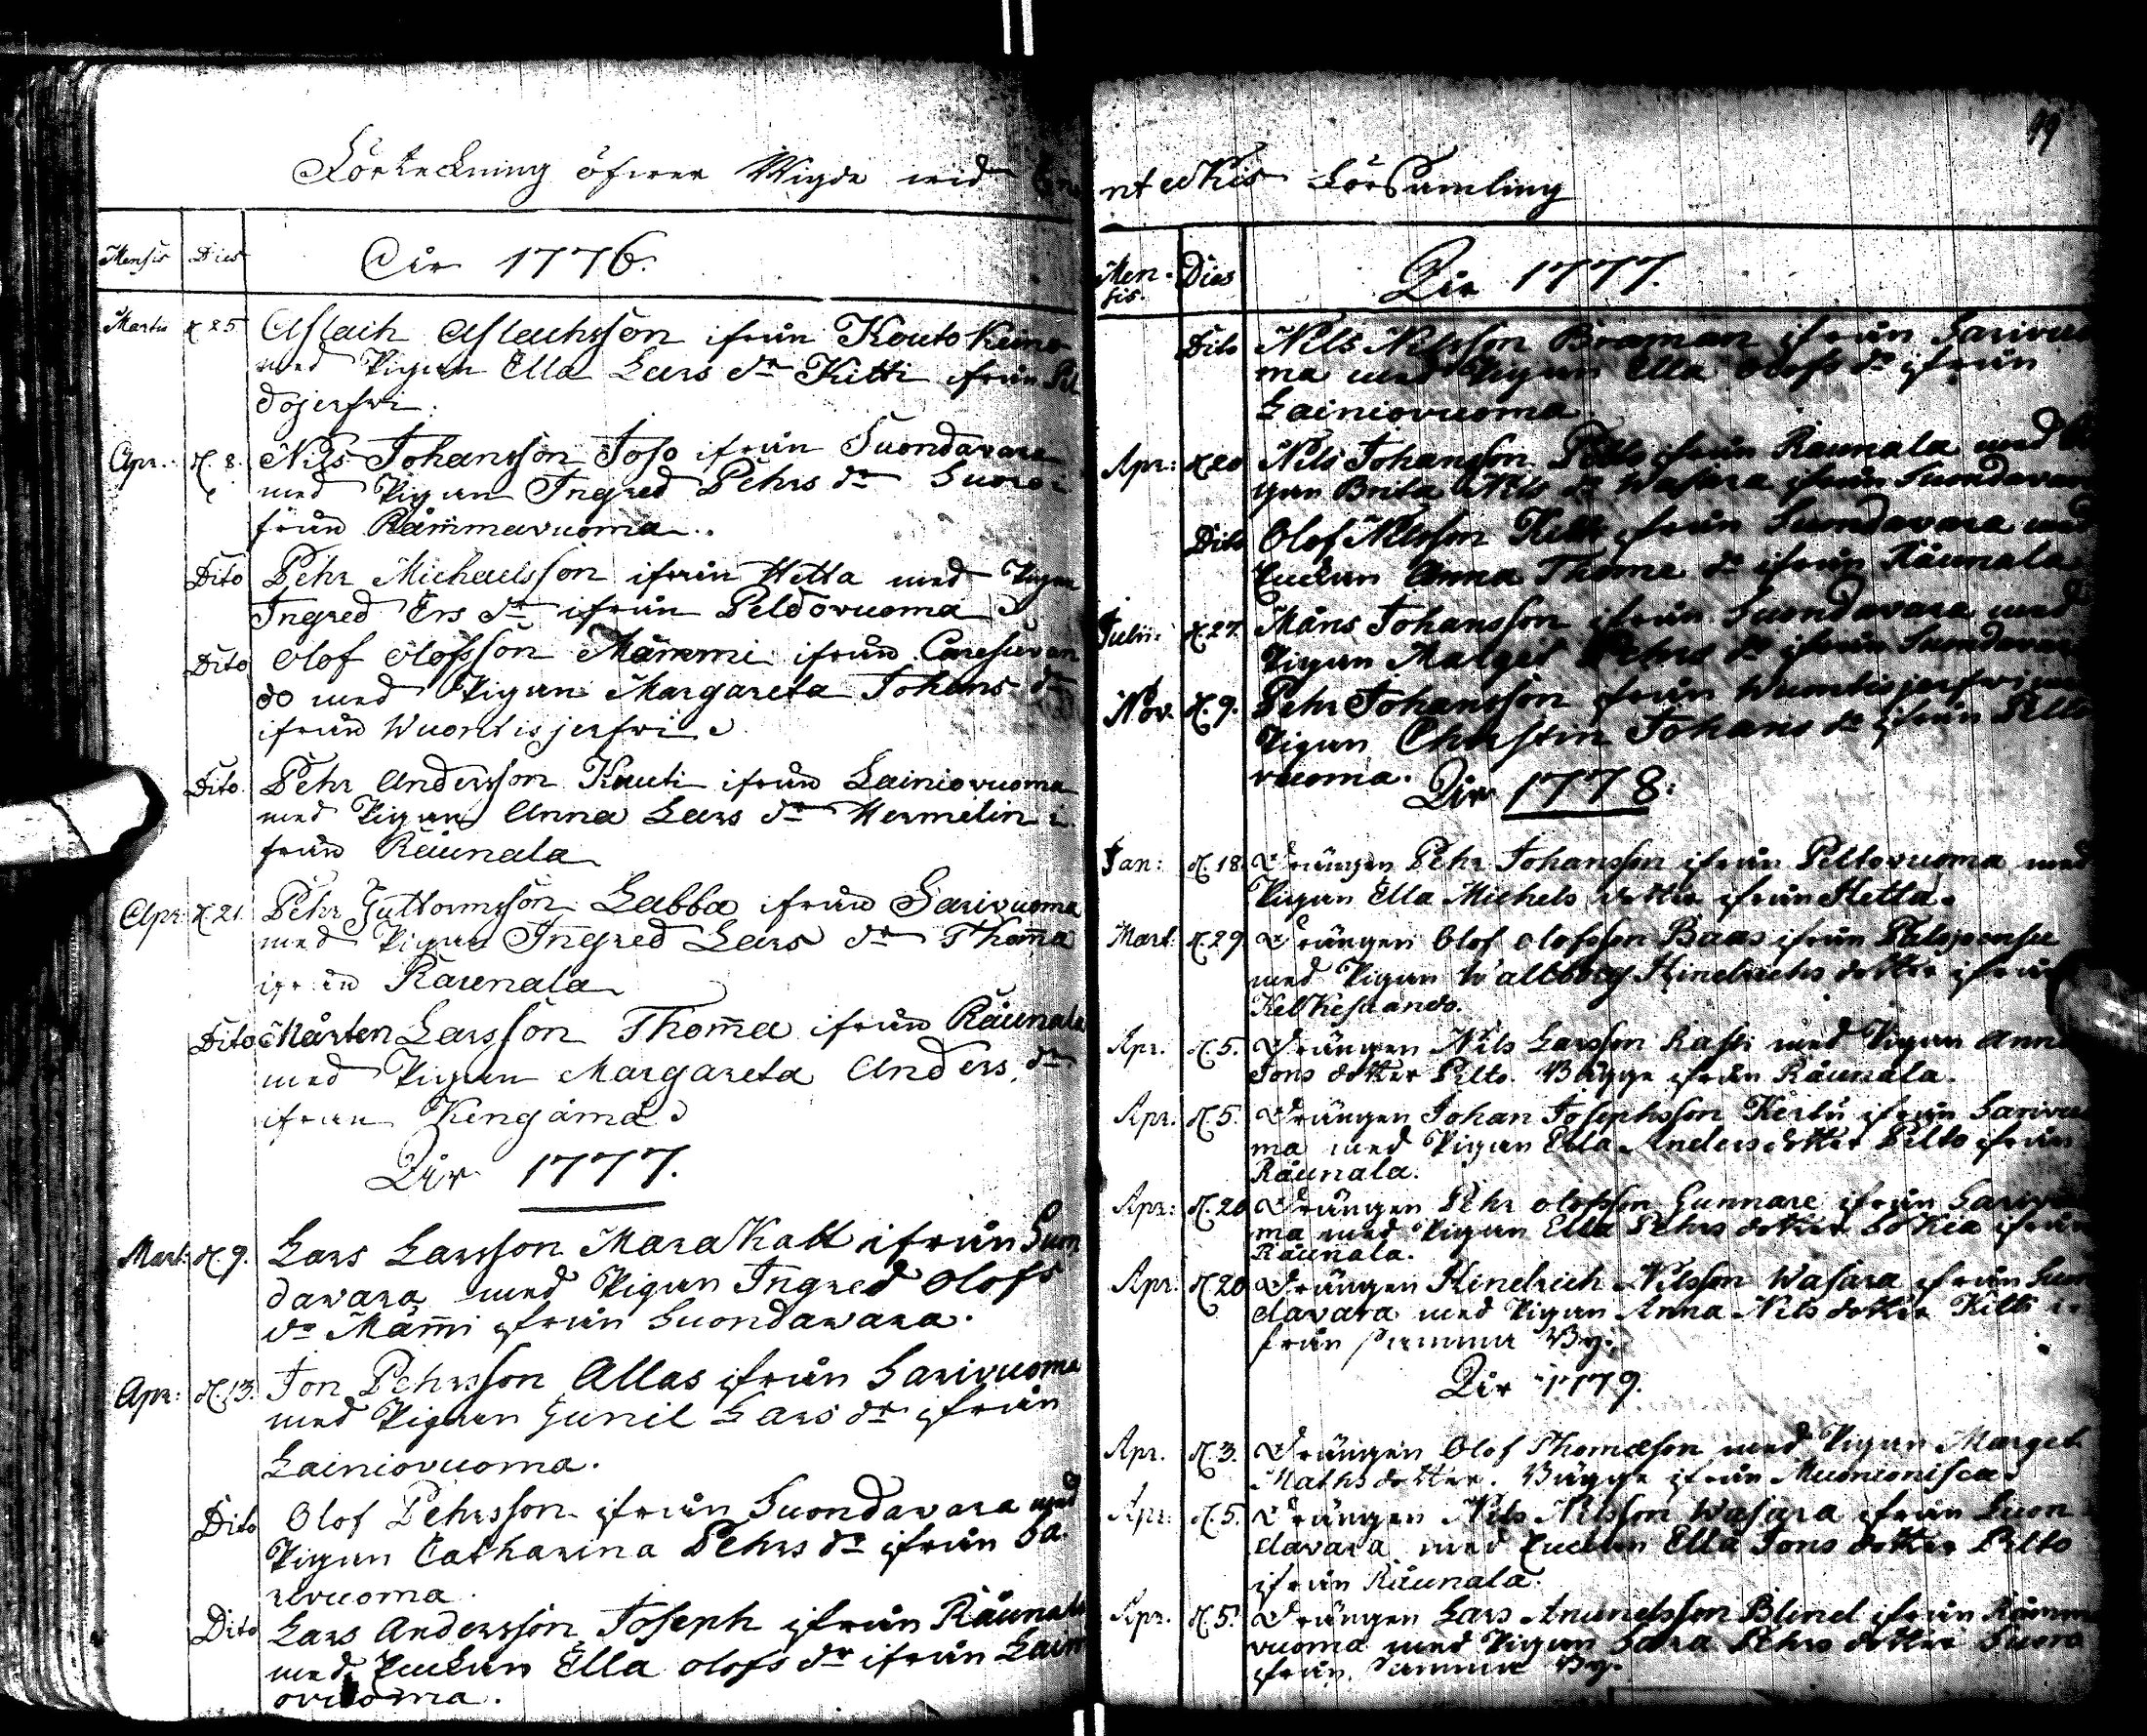 Förteckning öfwer Wigde wid
Mensis Dies Åir 1776.
Martii d. 25 Aslach Aslachsson ifrån Koutokeino
med Pigan Ella Lars dr Kitti ifrån Pel
dojerfwi.
Apr. d. 8. Nils Johansson Joso ifrån Suondavara
med Pigan Ingred Pehrs dr Suoro i
från Råmmavuoma.
Dito Pehr Michaelsson ifrån Hetta med Pigan
Ingred Ers dr ifrån Peldovuoma
Dito Olof Olofsson Mämmi ifrån Caresuvan
do med Pigan Margareta Johans dr
ifrån Wuontisjerfwi
Dito Pehr Andersson Kauti ifrån Lainiovuoma
med Pigan Anna Lars dr Hermelin i
från Råunala
Apr. d. 21. Pehr Guttormsson Labba ifrån Sarivuoma
med Pigan Ingred Lars dr Thoma
ifrån Raunala
Dito Mårten Larsson Thoma ifrån Råunala
med Pigan Margareta Anders dr
ifrån Kengämä
Åir 1777.
Mart. d. 9. Lars Larsson Marakatt ifrån Suon
davara med Pigan Ingred Olofs
dr Mämi ifrån Suondavara.
Apr: d. 13. Jon Pehrsson Allas ifrån Sarivuoma
med Pigan Gunil Lars dr ifrån
Lainiovuoma.
Dito Olof Pehrsson ifrån Suondavara med
Pigan Catharina Pehrs dr ifrån Sa-
rivuoma.
Dito Lars Andersson Joseph ifrån Råunala
med Enckan Ella Olofs dr ifrån Laini
ovuoma.
99
ntekis Församling
Men-
sis. Dies Åir 1777.
Dito Nils Nilsson Braman ifrån Sarivuo
ma med Pigan Ella Olofs dr ifrån
Lainiovuoma
Apr: d. 20 Nils Johansson Pelto ifrån Raunala med Pi
gan Brita Nils dr Wasara ifrån Suondavara
Dito Olof Nilsson Kitti ifrån Suondavara med
Enckan Anna Thome dr ifrån Råunala
Julii: d. 27. Måns Johansson ifrån Suondavara med
Pigan Marget Pehrs dr ifrån Suondavara
Nov. d. 9. Pehr Johansson ifrån Wuontisjerfwi med
Pigan Christin Johans dr ifrån Pelto
vuoma.
Åir 1778.
Jan: d. 18. Drängen Pehr Johansson ifrån Peltovuoma med
Pigan Ella Michels dotter ifrån Hetta.
Mart. d. 29 Drängen Olof Olofsson Baas ifrån Palojoensu
med Pigan Wallborg Hindrichs dotter ifrån
Kelkesuando.
Apr. d. 5. Drängen Nils Larsson Rasti med Pigan Anna
Jons dotter Pelto. Bägge ifrån Råunala.
Apr. d. 5. Drängen Johan Josephsson Kertu ifrån Sarivuo
ma med Pigan Ella Anders dotter Pelto ifrån
Råunala.
Apr: d. 20 Drängen Pehr Olofsson Gunnare ifrån Sarivuo
ma med Pigan Ella Pehrs dotter ifrån
Råunala.
Apr: d. 20 Drängen Hindrich Nilsson Wasara ifrån Suon
davara med Pigan Anna Nils dotter Kitti i
från samma By.
Åir 1779.
Apr. d. 3. Drängen Olof Thomæson med Pigan Marget
Maths dotter. Bägge ifrån Muonionisca.
Apr: d. 5. Drängen Nils Nilsson Wasara ifrån Suon
davara med Enckan Ella Jons dotter Pelto
ifrån Råunala.
Apr. d. 5. Drängen Lars Amundsson Blind ifrån Råmma
vuoma med Pigan Sara Pehrs dotter Suora
ifrån samma By.